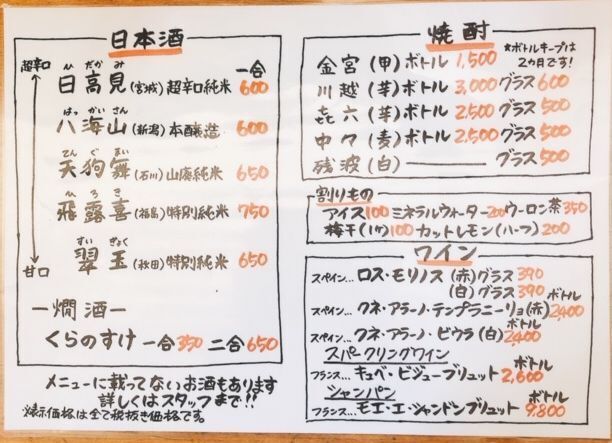 日本酒
超辛口
一合
ひだかみ
日高見(宮城)超辛口純米 600
はっかいさん
八海山(新潟)本醸造 600
てんぐまい
天狗舞(石川)山廃純米 650
ひろき
飛露喜(福島)特別純米 750
すいぎょく
翠玉(秋田)特別純米 650
甘口
ー燗酒ー
くらのすけ 一合350 二合650
メニューに載ってないお酒もあります
詳しくはスタッフまで!!
※表示価格は全て税抜き価格です。
焼酎
★ボトルキープは
2カ月です!
金宮(甲)ボトル 1,500
川越(芋)ボトル 3,000 グラス 600
㐂六(芋)ボトル 2,500 グラス 500
中々(麦)ボトル 2,500 グラス 500
残波(白)ー グラス 500
割りもの
アイス100 ミネラルウォーター200 ウーロン茶350
梅干(1ケ)100 カットレモン(ハーフ)200
ワイン
スペイン…ロス・モリノス(赤)グラス390
(白)グラス390
ボトル
スペイン…クネ・アラーノ・テンプラニーリョ(赤)2,400
ボトル
スペイン…クネ・アラーノ・ビウラ(白)2,400
スパークリングワイン
ボトル
フランス…キュベ・ビジューブリュット 2,600
シャンパン
ボトル
フランス…モエ・エ・シャンドンブリュット 9,800